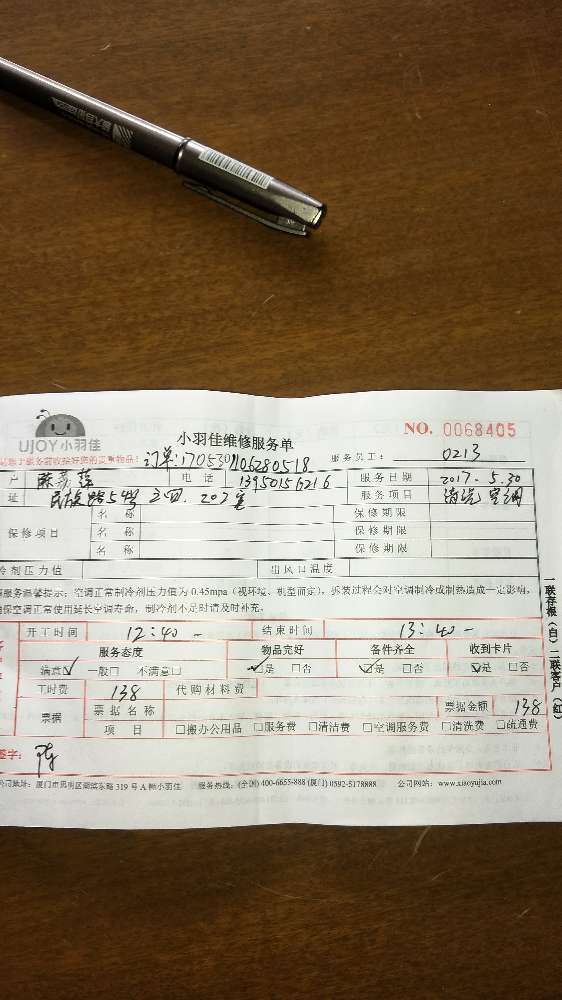 UJOY小羽佳
小羽佳维修服务单
NO. 0068405
服务前请收拾好您的贵重物品!
订单:170530106280518
服务员工: 0213
户 陈 莲 电话 13950156216 服务日期 2017.5.30
址 民族路54号之四. 207室 服务项目 清洗空调
保修项目
名称 保修期限
名称 保修期限
名称 保修期限
冷剂压力值 出风口温度
服务温馨提示:空调正常制冷剂压力值为 0.45mpa(视环境、机型而定),拆装过程会对空调制冷或制热造成一定影响,
确保空调正常使用延长空调寿命,制冷剂不足时请及时补充。
开工时间 12:40- 结束时间 13:40-
服务态度 物品完好 备件齐全 收到卡片
满意☑ 一般□ 不满意□ ☑是 □否 ☑是 □否 ☑是 □否
工时费 138 代购材料费
票据 票据名称 票据金额 138
项目 □搬办公用品 □服务费 □清洁费 □空调服务费 □清洗费 □疏通费
签字: 陈
公司地址:厦门市思明区湖滨东路 319 号 A 幢小羽佳 服务热线:(全国) 400-6655-888 (厦门) 0592-5178888 公司网站:www.xiaoyujia.com
一联存根(白)二联客户(红)